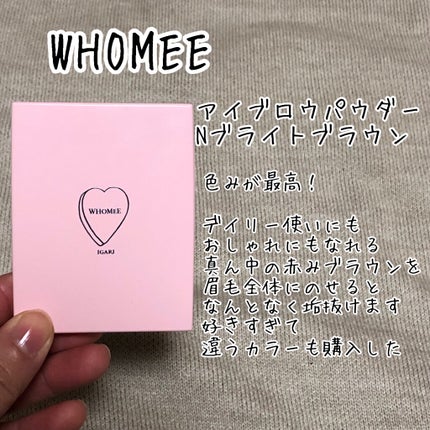 WHOMEE
アイブロウパウダー
Nブライトブラウン
色みが最高！
デイリー使いにも
おしゃれにもなれる
真ん中の赤みブラウンを
眉毛全体にのせると
なんとなく垢抜けます
好きすぎて
違うカラーも購入した
WHOMEE
IGARI